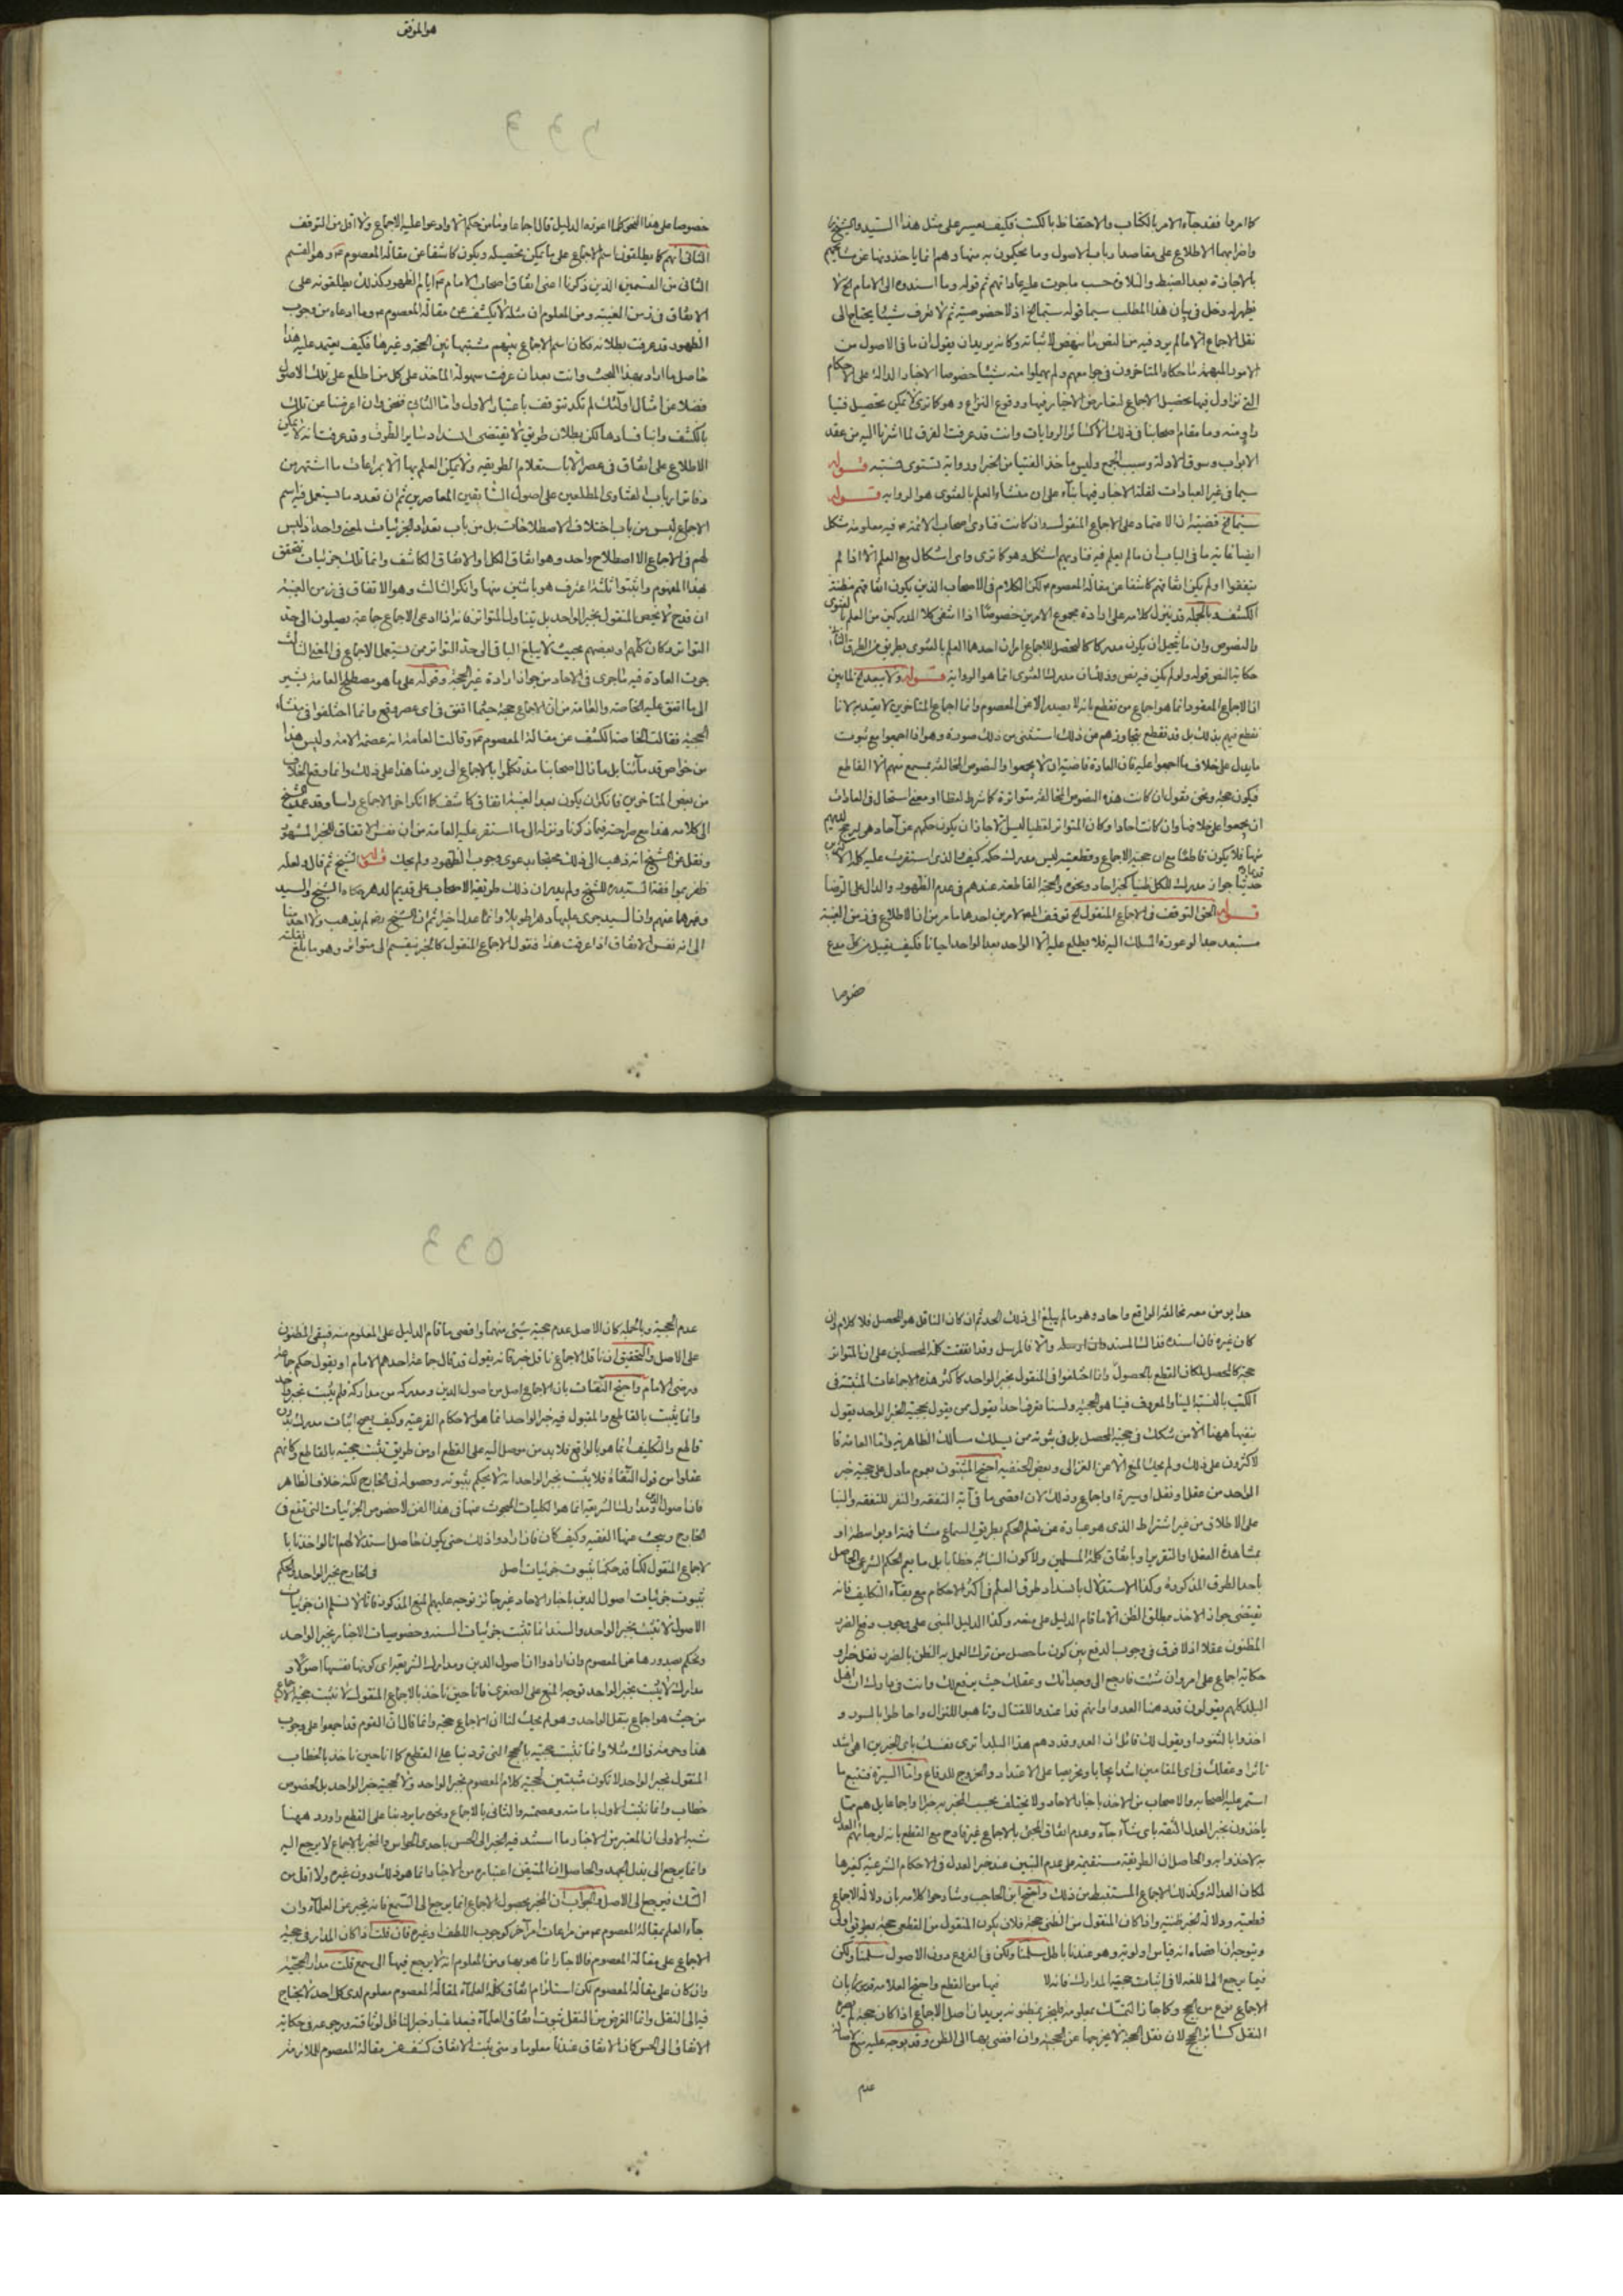 كما امروا فقد جاء الامر بالكتاب والاحتفاظ بالكتب فكيف يعسر على مثل هذا السيد والشيخ
واضرابهما الاطلاع على مقاصد ارباب الاصول وما يحكيون به منها وهم انما ياخذونها عن مشايخهم
بالاجازة بعد الضبط والتلاوة حسب ما جرت عليه عاداتهم ثم قوله وما اسندوه الى الامام الخ لا
يظهر له دخل في بيان هذا المطلب سيما قوله سيما الخ اذ لا خصوصية ثم لا نعرف شيئا يحتاج الى
نقل الاجماع الا ما لم يرد فيه من النص ما ينهض لاثباته وكانه يريد ان يقول ان ما في الاصول من
الامور المبهمة ما حكاه المتاخرون في جوامعهم ولم يهملوا منه شيئا خصوصا الاخبار الدالة على الاحكام
التي نزاول فيها تحصيل الاجماع لتعارض الاخبار فيها ووقوع النزاع وهو كما ترى لا يمكن تحصيل فتيا
راو منه وما مقام اصحابنا في ذلك الا كسائر الروايات وانت قد عرفت الفرق لما اشرنا اليه من عقد
الابواب وسوق الادلة وسبب الجمع وليس ماخذ الفتيا من الخبر ورواية تستوى فتبه قوله
سيما في غير العبادات لقلة الاخبار فيها بناء على ان منشاء العلم بالفتوى هو الرواية قوله
سيما الخ قضيته ان الاعتماد على الاجماع المنقول وان كانت فتاوى اصحاب الائمة ع فيه معلومة مشكل
ايضا غاية ما في الباب ان ما لم يعلم فيه فتاويهم اشكل وهو كما ترى واى اشكال مع العلم الا اذا لم
يتفقوا او لم يكن اتفاقهم كاشفا عن مقالة المعصوم ع لكن الكلام في الاصحاب الذين يكون اتفاقهم مظنة
الكشف وبالجملة قد ينزل كلامه على ارادة مجموع الامرين خصوصا اذا انتفى كلا المدركين من العلم بالفتوى
والنصوص وان ما يتخيل ان يكون مدركا كالمحصل للاجماع امران احدهما العلم بالفتوى بطريق من الطرق الثاني
حكاية النص قوله ولو لم يكن فيه نص وذلك ان مدرك الفتوى انما هو الرواية قوله ولا يبعد الخ لما بين
ان الاجماع المعقود انما هو اجماع من نقطع بانه لا يصدر الا عن المعصوم واما اجماع المتاخرين لا يعتد به لانا
نقطع فيهم بذلك بل قد نقطع بتجاوزهم عن ذلك استثنى من ذلك صورة وهو اذا اجمعوا مع ثبوت
ما يدل على خلاف ما اجمعوا عليه فان العادة قاضية ان لا يجمعوا والنصوص المخالفة بمسمع منهم الا القاطع
فيكون حجة ونحن نقول ان كانت هذه النصوص المخالفة متواترة كما شرط لفظا او معنى استحال في العادات
ان يجمعوا على خلافها وان كانت احادا وكان المتواتر لفظيا لفيسل لا جاز ان يكون حكمهم عن آحاد هي ارجح
منها فلا يكون قاطعا مع ان حجية الاجماع وقطعيته ليس مدرك حكمه كيف ما الذى استقرت عليه كلمة
حديثا جواز مدرك للكل ظنيا كخبر احاد ونحوه والحجة القاطعة عندهم في عدم الظهور والدال على الرضا
قوله الحق التوقف في الاجماع المنقول الخ توقف لامرين احدهما ما مر من ان الاطلاع في زمن الغيبة
مستبعد جدا لوعورة المسلك اليه فلا يطلع عليه الا الواحد بعد الواحد احيانا فكيف يقبل من كل مدع
خصوصا
هو الموفق
خصوصا على هذا النحو كلما اعوزه الدليل قال اجماعا وما من حكم الا وادعوا عليه الاجماع ولا اقل من التوقف
الثاني انهم كما يطلقون اسم الاجماع على ما يمكن تحصيله ويكون كاشفا عن مقالة المعصوم ع وهو القسم
الثاني من القسمين الذين ذكرنا اعنى اتفاق اصحاب الامام ع ايام الظهور كذلك يطلقونه على
الاتفاق في زمن الغيبة ومن المعلوم ان مثله لا يكشف عن مقالة المعصوم ع وما ادعاه من وجوب
الظهور قد عرفت بطلانه فكان اسم الاجماع بينهم مشتبها بين الحجة وغيرها فكيف يعتمد عليه هذا
حاصل ما اراد بهذا البحث وانت بعد ان عرفت سهولة الماخذ على كل من اطلع على تلك الاصول
فضلا عن امثال اولئك لم تكد تتوقف باعتبار الاول واما الثاني فنحن وان اعرضنا عن تلك
بالكشف وابنا فسادها لكن بطلان طريق لا يقتضى انسداد ساير الطرق وقد عرفت انه لا يمكن
الاطلاع على اتفاق في عصر الا باستعلام الطريقة ولا يمكن العلم بها الا بمراعات ما اشتهر من
وفاق ارباب الفتاوى المطلعين على اصول السابقين المعاصرين ثم ان تعدد ما يستعمل فيه اسم
الاجماع ليس من باب اختلاف الاصطلاحات بل من باب تعداد الجزئيات لمعنى واحد اذ ليس
لهم في الاجماع الا اصطلاح واحد وهو اتفاق الكل او الاتفاق الكاشف وانما تلك جزئيات تتحقق
هذا المفهوم واثبتوا ثلثة اعترف هو باثنين منها وانكر الثالث وهو الاتفاق في زمن الغيبة
ان قدح لا يخص المنقول بخبر الواحد بل يتناول المتواتر فانه اذا ادعى الاجماع جماعة يصلون الى حد
التواتر وكان كلهم او بعضهم بحيث لا يبلغ الباقي الى حد التواتر ممن يستعمل الاجماع في المعنى الثالث
جرت العادة فيه ما جرى في الاحاد من جواز ارادة غير الحجة وقوله على ما هو مصطلح العامة يشير
الى ما اتفق عليه الخاصة والعامة من ان الاجماع حجة حيثما اتفق في اى عصر وقع وانما اختلفوا في منشاء
الحجية فقالت الخاصة الكشف عن مقالة المعصوم ع وقالت العامة انه عصمة الامة وليس هذا
من خواص قدمائنا بل ما زال اصحابنا مذ تكلموا بالاجماع الى يومنا هذا على ذلك وانما وقع الخلاف
من بعض المتاخرين فانكر ان يكون بعد الغيبة اتفاق كاشف كما انكر اخر الاجماع راسا وقد عمد الشيخ
الى كلامه هذا مع صراحته فيما ذكرنا ونزله الى ما استقر عليه العامة من ان نفس الاتفاق للخبر المشهور
ونقل عن الشيخ انه ذهب الى ذلك محتجا بدعوى وجوب الظهور ولم يحك قول الشيخ ثم قال ولعله
ظفر بموافقة السيد للشيخ ولم يدر ان ذلك طريقة الاصحاب على قديم الدهر حكاه الشيخ والسيد
وغيرهما عنهم وان السيد جرى عليها دهرا طويلا وانما عدل اخيرا ثم ان الشيخ رحمه الله لم يذهب ولا احد منا
الى انه نفس الاتفاق اذا عرفت هذا فنقول الاجماع المنقول كالخبر ينقسم الى متواتر وهو ما بلغ نقلته
حدا يؤمن معه مخالفة الواقع واحاد وهو ما لم يبلغ الى ذلك الحد ثم ان كان الناقل هو المحصل فلا كلام وان
كان غيره فان اسنده فذالك المسند وان ارسله والا فالمرسل وقد اتفقت كلمة المحصلين على ان المتواتر
حجة كالمحصل لمكان القطع بالحصول وانما اختلفوا في المنقول بخبر الواحد كاكثر هذه الاجماعات المثبتة في
الكتب بالنسبة الينا والمعروف فينا هو الحجية ولسنا نعرف احدا يقول ممن يقول بحجية الخبر الواحد يقول
بنفيها ههنا الا من شكك في حجية المحصل بل في ثبوته ممن يسلك مسالك الظاهرية واما العامة فا
لاكثرون على ذلك ولم يحك المنع الا عن الغزالى وبعض الحنفية احتج المثبتون بعموم ما دل على حجية خبر
الواحد من عقل ونقل او سيرة او اجماع وذلك لان اقصى ما في آية التفقه والنفر للتفقه والنبا
على الاطلاق من غير اشتراط الذى هو عبارة عن تعلم الحكم بطريق السماع مشافهة او بواسطة او
بمشاهدة الفعل او التقرير او باتفاق كلمة المسلمين ولا كون النباء به خطابا بل ما يعم الحكم الشرعى الحاصل
باحد الطرق المذكورة وكذا الاستقلال بانسداد طرق العلم في اكثر الاحكام مع بقاء التكليف فانه
يقتضى جواز الاخذ بمطلق الظن الا ما قام الدليل على منعه وكذا الدليل المبنى على وجوب دفع الضرر
المظنون عقلا اذ لا فرق في وجوب الدفع بين كون ما حصل من ترك العمل به الظن بالضرر نقل خبر او
حكاية اجماع على امر وان شئت فارجع الى وجدانك وعقلك حيث يفزعك وانت في بلدك ان اهل
البلد كلهم يقولون قد دهمنا العدو او انهم قد اعتدوا للقتال وتاهبوا للنزال واحاطوا بالسور و
اخذوا بالثغور او يقول لك قائل ان العدو قد دهم هذا البلد اترى نفسك باى الخبرين اهى اشد
تاثرا وعقلك في اى المقامين اشد ايجابا وتحريصا على الاعتداد والخروج للدفاع واما السيرة فتتبع ما
استمر عليه الصحابة والاصحاب من الاخذ باخبار الاحاد ولا يختلف بحسب المخبر به خبرا واجماعا بل هم متى
ياخذون بخبر العدل الثقة باى شاء جاء وعدم اتفاق المجئ بالاجماع غير قادح مع القطع بانه لو جائهم العدل
به لاخذوا به والحاصل ان الطريقة مستقيمة على عدم التبين عند خبر العدل في الاحكام الشرعية كغيرها
لمكان العدالة وكذلك الاجماع المستنبط من ذلك واحتج ابن الحاجب وشارحوا كلامه بان دلالة الاجماع
قطعية ودلالة الخبر ظنية واذا كان المنقول من الظنى حجة فلان يكون المنقول من القطعى حجة بطريق اولى
ويتوجه ان اقصاه انه قياس اولوية وهو عندنا باطل سلمنا ولكن في الفروع دون الاصول سلمنا ولكن
فيما يرجع الى اللغة لا في اثبات حجية المدارك فانه لا فيها من القطع واحتج العلامة قدس سره بان
الاجماع نوع من الحجج وكما جاز التمسك بمعلومه فليجز بمظنونه يريد ان اصل الاجماع اذا كان حجة لم يضره
النقل كسائر الحجج لان نقل الحجة لا يخرجها عن الحجية وان افضى بها الى الظن وقد يوجه عليه منع اصالة
عدم
عدم الحجية وبالجملة كان الاصل عدم حجية شئ منهما واقصى ما قام الدليل على المعلوم منه فيبقى المظنون
على الاصل والتحقيق ان ناقل الاجماع ناقل خبر فانه يقول قد قال جماعة احدهم الامام او يقول حكم جماعة
ورضى الامام واحتج النفات بان الاجماع اصل من اصول الدين ومدركه من مداركه فلم يثبت بخبر واحد
وانما يثبت بالقاطع والمقبول فيه خبر الواحد انما هو الاحكام الفرعية وكيف يصح اثبات مدرك بدون
قاطع والتكليف انما هو بالواقع فلا بد من موصل اليه على القطع او من طريق ثبت حجيته بالقاطع كانهم
عقلوا من قول النفاة فلا يثبت بخبر الواحد انه لا يحكم بثبوته وحصوله في الخارج لكنه خلاف الظاهر
فان اصول الدين ومدارك الشريعة انما هو الكليات المبحوث عنها في هذا الفن لا خصوص الجزئيات التى تقع في
الخارج ويبحث عنها الفقيه وكيف كان فان ارادوا ذلك حتى يكون حاصل استدلالهم انا لو اخذنا با
لاجماع المنقول لكنا قد حكمنا بثبوت جزئيات اصل في الخارج بخبر الواحد والحكم
بثبوت جزئيات اصول الدين باخبار الاحاد غير جائز توجه عليهم المنع المذكور فانا لا نسلم ان جزئيات
الاصول لا تثبت بخبر الواحد والسند انا نثبت جزئيات السنة وخصوصيات الاخبار بخبر الواحد
ونحكم بصدورها عن المعصوم وان ارادوا ان اصول الدين ومدارك الشريعة اى كونها نفسها اصولا و
مدارك لا يثبت بخبر الواحد توجه المنع على الصغرى فانا حين ناخذ بالاجماع المنقول لا نثبت حجية الاجماع
من حيث هو اجماع بنقل الواحد وهو لم يحك لنا ان الاجماع حجة وانما قال ان القوم قد اجمعوا على وجوب
هذا وحرمة ذاك مثلا وانما نثبت حجيته بالحجج التى تورد بنا على القطع كما انا حين ناخذ بالخطاب
المنقول بخبر الواحد لا نكون مثبتين لحجية كلام المعصوم بخبر الواحد ولا لحجية خبر الواحد بل لخصوص
خطاب وانما نثبت الاول بامامته وعصمته والثانى بالاجماع ونحوه مما يورد بنا على القطع واورد ههنا
شبه الاولى ان المعتبر من الاخبار ما استند فيه المخبر الى الحس باحدى الحواس والمخبر بالاجماع لا يرجع اليه
وانما يرجع الى بذل الجهد والحاصل ان المتيقن اعتباره من الاخبار انما هو ذلك دون غيره ولا اقل من
الشك فيرجع الى الاصل والجواب ان المخبر بحصول الاجماع انما يرجع الى السمع فانه يخبر عن العلماء وان
جاء العلم بمقالة المعصوم ع من مراعات امر آخر كوجوب اللطف وغيره فان قلت اذا كان المدار في حجية
الاجماع على مقالة المعصوم فالاخبار انما هو بها ومن المعلوم انه لا يرجع فيها الى سمع قلت مدار الحجية
وان كان على مقالة المعصوم لكن استلزام اتفاق كلمة العلماء لمقالة المعصوم معلوم لدى كل احد لا يحتاج
فيه الى النقل وانما الغرض من النقل ثبوت اتفاق العلماء فبعد اعتبار خبر الناقل لوثاقته ورجوعه في حكاية
الاتفاق الى الحس كان الاتفاق عندنا معلوما ومتى ثبت الاتفاق كشف عن مقالة المعصوم للملازمة